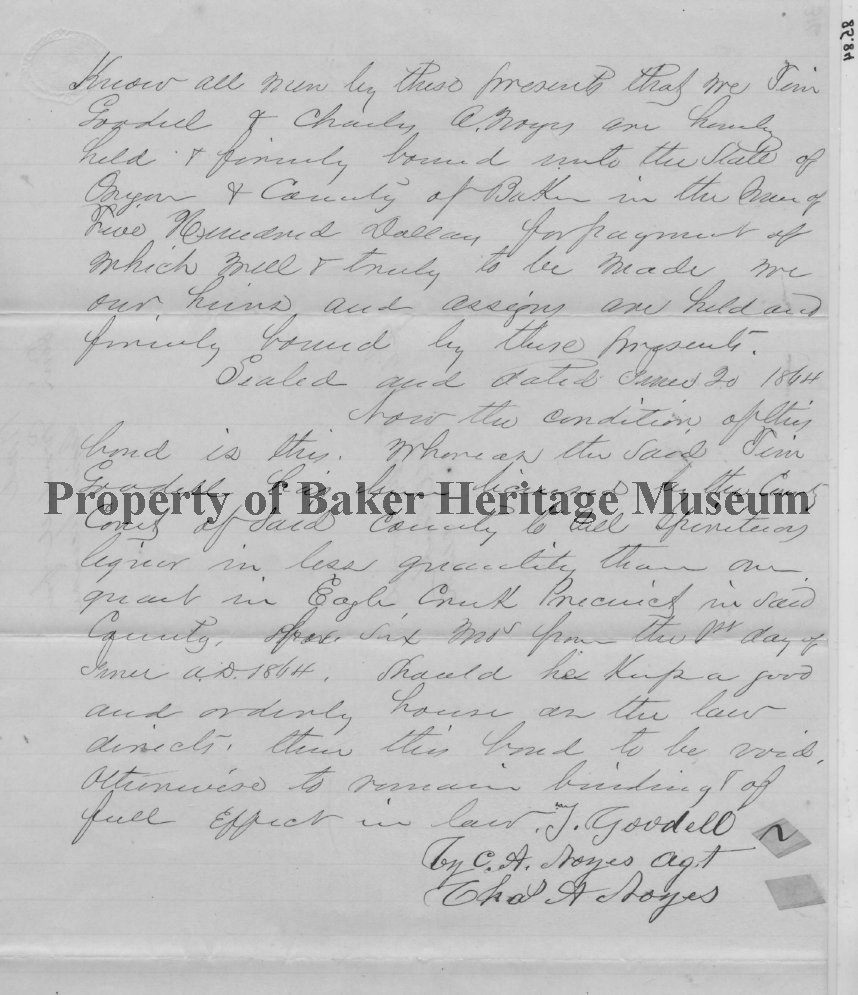 8584
Know all men by these presents that we Tim
Goodell & Charles A. Noyes are hereby
held & firmly bound unto the State of
Oregon & County of Baker in the sum of
Five Hundred Dollars for payment of
which well & truly to be made we
our heirs and assigns are held and
firmly bound by these presents.
Sealed and dated June 20 1864
Now the condition of this
bond is this. Whereas the said Tim
Goodell has been licensed by the
Property of Baker Heritage Museum
Court of said County to sell spirituous
liquor in less quantity than one
quart in Eagle Creek Precinct in said
County, for six mos from the 1st day of
June A.D. 1864. Should he keep a good
and orderly house as the law
directs. then this bond to be void.
otherwise to remain binding & of
full effect in law. T. Goodell
by C. A. Noyes Agt
Chas A Noyes